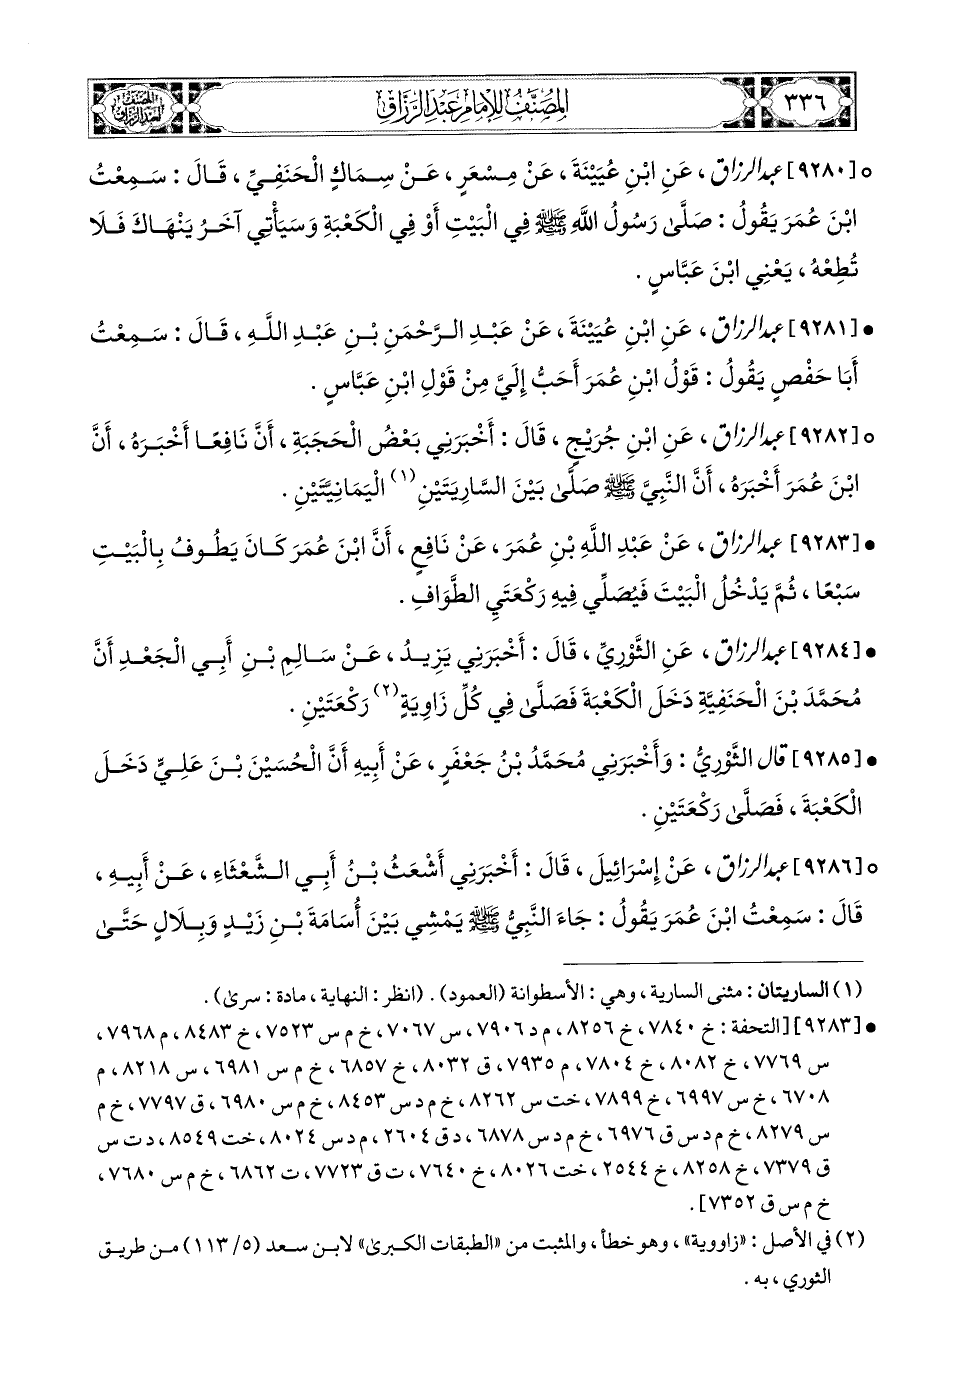 ٣٣٦
المصنف للإمام عبد الرزاق
المصنف لعبد الرزاق
○ [٩٢٨٠] عبد الرزاق ، عَنِ ابْنِ عُيَيْنَةَ ، عَنْ مِسْعَرٍ ، عَنْ سِمَاكٍ الْحَنَفِيِّ ، قَالَ : سَمِعْتُ
ابْنَ عُمَرَ يَقُولُ : صَلَّى رَسُولُ اللَّهِ ﷺ فِي الْبَيْتِ أَوْ فِي الْكَعْبَةِ وَسَيَأْتِي آخَرُ يَنْهَاكَ فَلَا
تُطِعْهُ ، يَعْنِي ابْنَ عَبَّاسٍ .
• [٩٢٨١] عبد الرزاق ، عَنِ ابْنِ عُيَيْنَةَ ، عَنْ عَبْدِ الرَّحْمَنِ بْنِ عَبْدِ اللَّهِ ، قَالَ : سَمِعْتُ
أَبَا حَفْصٍ يَقُولُ : قَوْلُ ابْنِ عُمَرَ أَحَبُّ إِلَيَّ مِنْ قَوْلِ ابْنِ عَبَّاسٍ .
○ [٩٢٨٢] عبد الرزاق ، عَنِ ابْنِ جُرَيْجٍ ، قَالَ : أَخْبَرَنِي بَعْضُ الْحَجَبَةِ ، أَنَّ نَافِعًا أَخْبَرَهُ ، أَنَّ
ابْنَ عُمَرَ أَخْبَرَهُ ، أَنَّ النَّبِيَّ ﷺ صَلَّى بَيْنَ السَّارِيَتَيْنِ(١) الْيَمَانِيَّتَيْنِ .
• [٩٢٨٣] عبد الرزاق ، عَنْ عَبْدِ اللَّهِ بْنِ عُمَرَ ، عَنْ نَافِعٍ ، أَنَّ ابْنَ عُمَرَ كَانَ يَطُوفُ بِالْبَيْتِ
سَبْعًا ، ثُمَّ يَدْخُلُ الْبَيْتَ فَيُصَلِّي فِيهِ رَكْعَتَيِ الطَّوَافِ .
• [٩٢٨٤] عبد الرزاق ، عَنِ الثَّوْرِيِّ ، قَالَ : أَخْبَرَنِي يَزِيدُ ، عَنْ سَالِمِ بْنِ أَبِي الْجَعْدِ أَنَّ
مُحَمَّدَ بْنَ الْحَنَفِيَّةِ دَخَلَ الْكَعْبَةَ فَصَلَّى فِي كُلِّ زَاوِيَةٍ(٢) رَكْعَتَيْنِ .
• [٩٢٨٥] قال الثَّوْرِيُّ : وَأَخْبَرَنِي مُحَمَّدُ بْنُ جَعْفَرٍ ، عَنْ أَبِيهِ أَنَّ الْحُسَيْنَ بْنَ عَلِيٍّ دَخَلَ
الْكَعْبَةَ ، فَصَلَّى رَكْعَتَيْنِ .
○ [٩٢٨٦] عبد الرزاق ، عَنْ إِسْرَائِيلَ ، قَالَ : أَخْبَرَنِي أَشْعَثُ بْنُ أَبِي الشَّعْثَاءِ ، عَنْ أَبِيهِ ،
قَالَ : سَمِعْتُ ابْنَ عُمَرَ يَقُولُ : جَاءَ النَّبِيُّ ﷺ يَمْشِي بَيْنَ أُسَامَةَ بْنِ زَيْدٍ وَبِلَالٍ حَتَّى
(١) الساريتان : مثنى السارية ، وهي : الأسطوانة (العمود) . (انظر : النهاية ، مادة : سرى) .
• [٩٢٨٣] [التحفة : خ ٧٨٤٠ ، خ ٨٢٥٦ ، م د ٧٩٠٦ ، س ٧٠٦٧ ، خ م س ٧٥٢٣ ، خ ٨٤٨٣ ، م ٧٩٦٨ ،
س ٧٧٦٩ ، خ ٨٠٨٢ ، خ ٧٨٠٤ ، م ٧٩٣٥ ، ق ٨٠٣٢ ، خ ٦٨٥٧ ، خ م س ٦٩٨١ ، س ٨٢١٨ ، م
٦٧٠٨ ، خ س ٦٩٩٧ ، خ ٧٨٩٩ ، خت س ٨٢٦٢ ، خ م د س ٨٤٥٣ ، خ م س ٦٩٨٠ ، ق ٧٧٩٧ ، خ م
س ٨٢٧٩ ، خ م د س ق ٦٩٧٦ ، خ م د س ٦٨٧٨ ، د ق ٢٦٠٤ ، م د س ٨٠٢٤ ، خت ٨٥٤٩ ، د ت س
ق ٧٣٧٩ ، خ ٨٢٥٨ ، خ ٢٥٤٤ ، خت ٨٠٢٦ ، خ ٧٦٤٠ ، ت ق ٧٧٢٣ ، ت ٦٨٦٢ ، خ م س ٧٦٨٠ ،
خ م س ق ٧٣٥٢] .
(٢) في الأصل : «زاووية» ، وهو خطأ ، والمثبت من «الطبقات الكبرى» لابن سعد (٥/ ١١٣) من طريق
الثوري ، به .